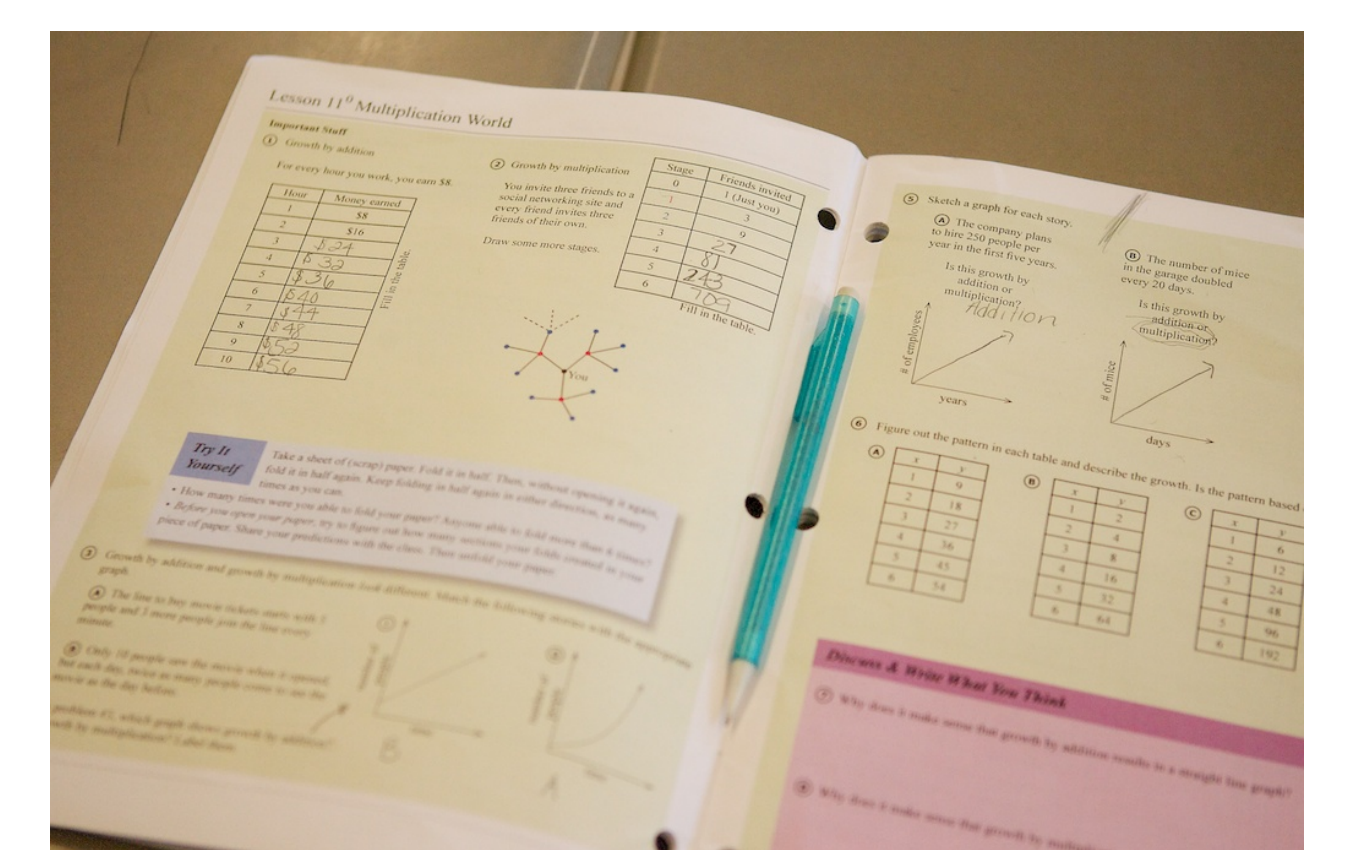 Lesson 11⁰ Multiplication World
Important Stuff
① Growth by addition
For every hour you work, you earn $8.
Hour Money earned
1 $8
2 $16
3 $24
4 $32
5 $36
6 $40
7 $44
8 $48
9 $52
10 $56
Fill in the table.
② Growth by multiplication
You invite three friends to a
social networking site and
every friend invites three
friends of their own.
Draw some more stages.
Stage Friends invited
0 1 (Just you)
1 3
2 9
3 27
4 81
5 243
6 709
Fill in the table.
You
Try It
Yourself
Take a sheet of (scrap) paper. Fold it in half. Then, without opening it again,
fold it in half again. Keep folding in half again in either direction, as many
times as you can.
• How many times were you able to fold your paper? Anyone able to fold more than 6 times?
• Before you open your paper, try to figure out how many sections your folds created in your
piece of paper. Share your predictions with the class. Then unfold your paper.
③ Growth by addition and growth by multiplication look different. Match the following stories with the appropriate
graph.
Ⓐ The line to buy movie tickets starts with
people and 3 more people join the line every
minute.
Ⓑ Only 10 people saw the movie when it opened,
but each day, twice as many people come to see the
movie as the day before.
problem #2, which graph shows growth by addition?
by multiplication? Label them.
①
B
②
A
⑤ Sketch a graph for each story.
Ⓐ The company plans
to hire 250 people per
year in the first five years.
Is this growth by
addition or
multiplication?
Addition
# of employees
years
Ⓑ The number of mice
in the garage doubled
every 20 days.
Is this growth by
addition or
multiplication?
# of mice
days
⑥ Figure out the pattern in each table and describe the growth. Is the pattern based
Ⓐ
x y
1 9
2 18
3 27
4 36
5 45
6 54
Ⓑ
x y
1 2
2 4
3 8
4 16
5 32
6 64
Ⓒ
x y
1 6
2 12
3 24
4 48
5 96
6 192
Discuss & Write What You Think
⑦ Why does it make sense that growth by addition results in a straight line graph?
⑧ Why does it make sense that growth by